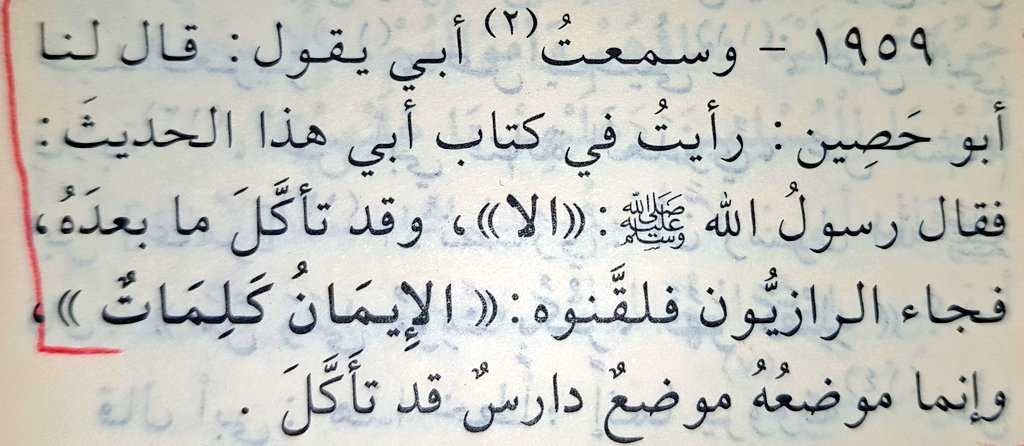 ١٩٥٩ - وسمعتُ(٢) أبي يقول: قال لنا
أبو حَصِين: رأيتُ في كتاب أبي هذا الحديثَ:
فقال رسولُ الله ﷺ: «الا»، وقد تأكَّلَ ما بعدَهُ،
فجاء الرازيُّون فلقَّنوه: «الإِيمَانُ كَلِمَاتٌ»،
وإنما موضعُهُ موضعٌ دارسٌ قد تأَكَّلَ .